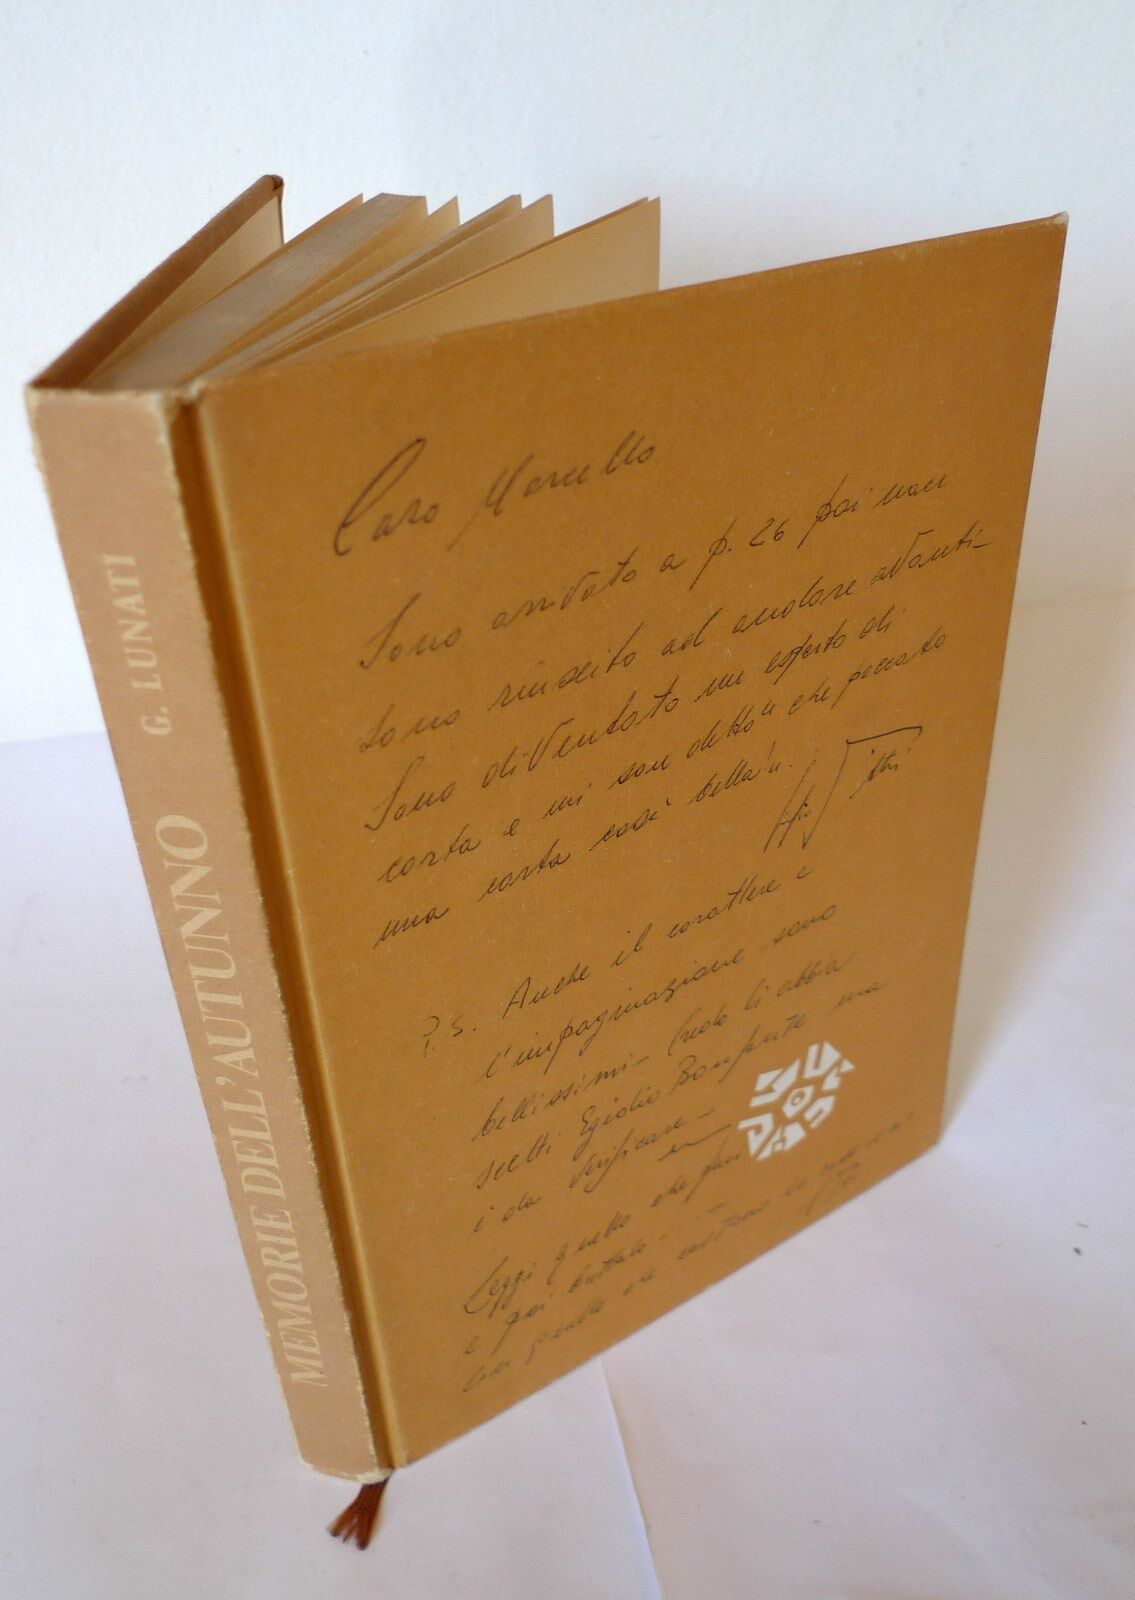 G. LUNATI
MEMORIE DELL'AUTUNNO
Caro Marcello
Sono arrivato a p. 26 poi non
sono riuscito ad andare avanti-
Sono diventato un esperto di
carta e mi son detto "che peccato
una carta così bella".
P.S. Anche il carattere e
l'impaginazione sono
bellissimi- Credo li abbia
scelti Egidio Bonfante ma
è da verificare-
Leggi quello che puoi
e poi buttalo-